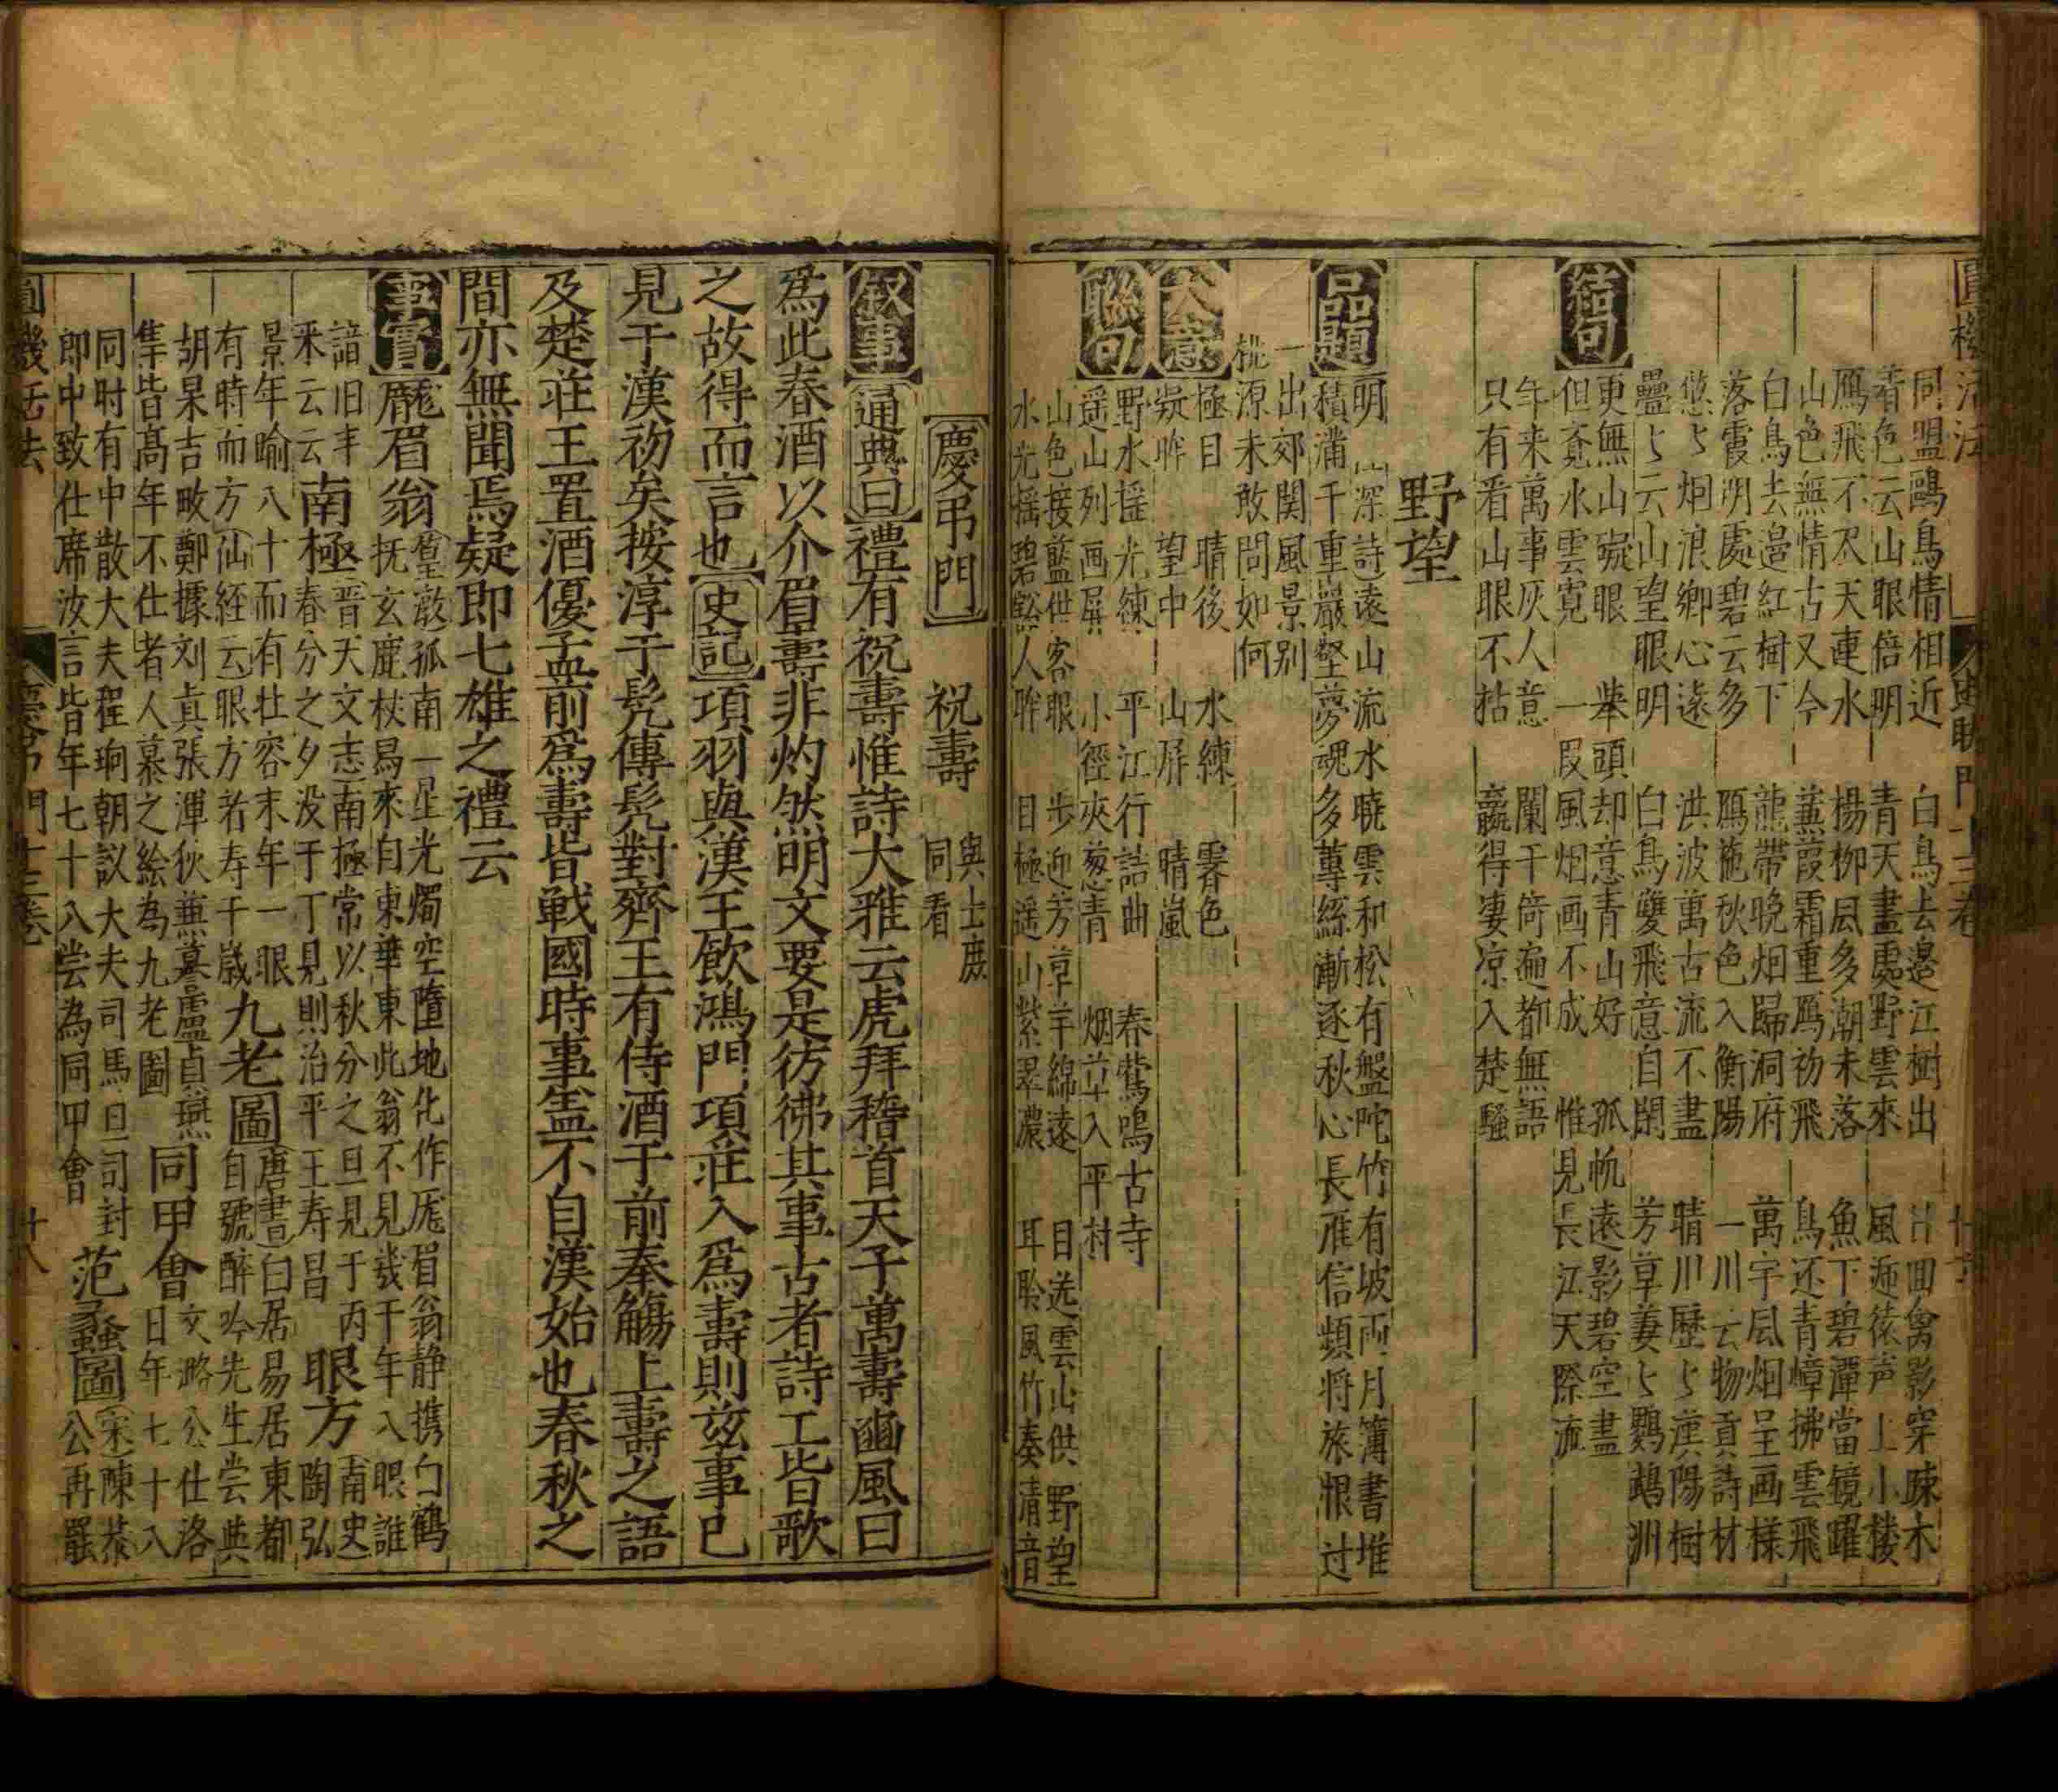 同盟鷗鳥情相近 白鳥去邉江樹出 回禽影穿疎木
看色云山眼倍明 青天盡處野雲來 風逓猿声上小楼
鴈飛不尽天連水 楊柳風多潮未落 魚下碧潭當鏡躍
山色無情古又今 蒹葭霜重鴈初飛 鳥还青嶂拂雲飛
白鳥去邉紅樹下 龍帶晚烟歸洞府 萬宇風烟呈画様
落霞明處碧云多 鴈拖秋色入衡陽 一川云物貢詩材
悠〻烟浪鄉心遠 洪波萬古流不盡 晴川歷〻漢陽樹
疊〻云山望眼明 白鳥雙飛意自閑 芳草萋〻鸚鵡洲
結句
更無山礙眼 舉頭却意青山好 孤帆遠影碧空盡
但覓水雲寛 一段風烟画不成 惟見長江天際流
年来萬事灰人意 闌干倚遍都無語
只有看山眼不枯 贏得凄凉入楚騷
野望
品題
明 深詩遠山流水曉雲和松有盤陀竹有坡雨月簿書堆
積滿千重巖壑夢魂多蓴絲漸逐秋心長雁信頻将旅恨过
一出郊関風景别
桃源未敢問如何
大意
極目 晴後 水練 霽色
凝眸 望中 山屏 晴嵐
聯句
野水揺光練 平江行詰曲 春鶯鳴古寺
遥山列画屏 小徑夾葱青 烟草入平村
山色接藍供客眼 步迎芳草芊綿遠 目送雲山供野望
水光揺碧豁人眸 目極遥山紫翠濃 耳聆風竹奏清音
慶弔門
祝壽 與士庶同看
叙事 通典曰禮有祝壽惟詩大雅云虎拜稽首天子萬壽豳風曰
爲此春酒以介眉壽非灼然明文要是彷彿其事古者詩工皆歌
之故得而言也史記項羽與漢王飲鴻門項莊入爲壽則玆事已
見于漢初矣按淳于髡傳髡對齊王有侍酒于前奉觴上壽之語
及楚莊王置酒優孟前爲壽皆戰國時事盖不自漢始也春秋之
間亦無聞焉疑即七雄之禮云
事實 厖眉翁 篁敔孤南一星光燭空墮地化作厖眉翁静携白鶴
抚玄鹿杖舄來自東華東此翁不見幾千年入眼誰
諳旧丰
采云云 南極 晋天文志南極常以秋分之旦見于丙
春分之夕没于丁見則治平王寿昌 眼方 南史陶弘
景年踰八十而有壮容末年一眼
有時而方仙経云眼方者寿千歲 九老圖 唐書白居易居東都
自號醉吟先生尝與
胡杲吉畋鄭據刘真張渾狄兼謩盧貞燕
集皆髙年不仕者人慕之绘為九老圖 同甲會 文潞公仕洛
日年七十八
同时有中散大夫程珦朝议大夫司馬旦司封
郎中致仕席汝言皆年七十八尝為同甲會 范蠡圖 宋陳恭
公再罷
圓機活法
慶弔門十三卷
十八